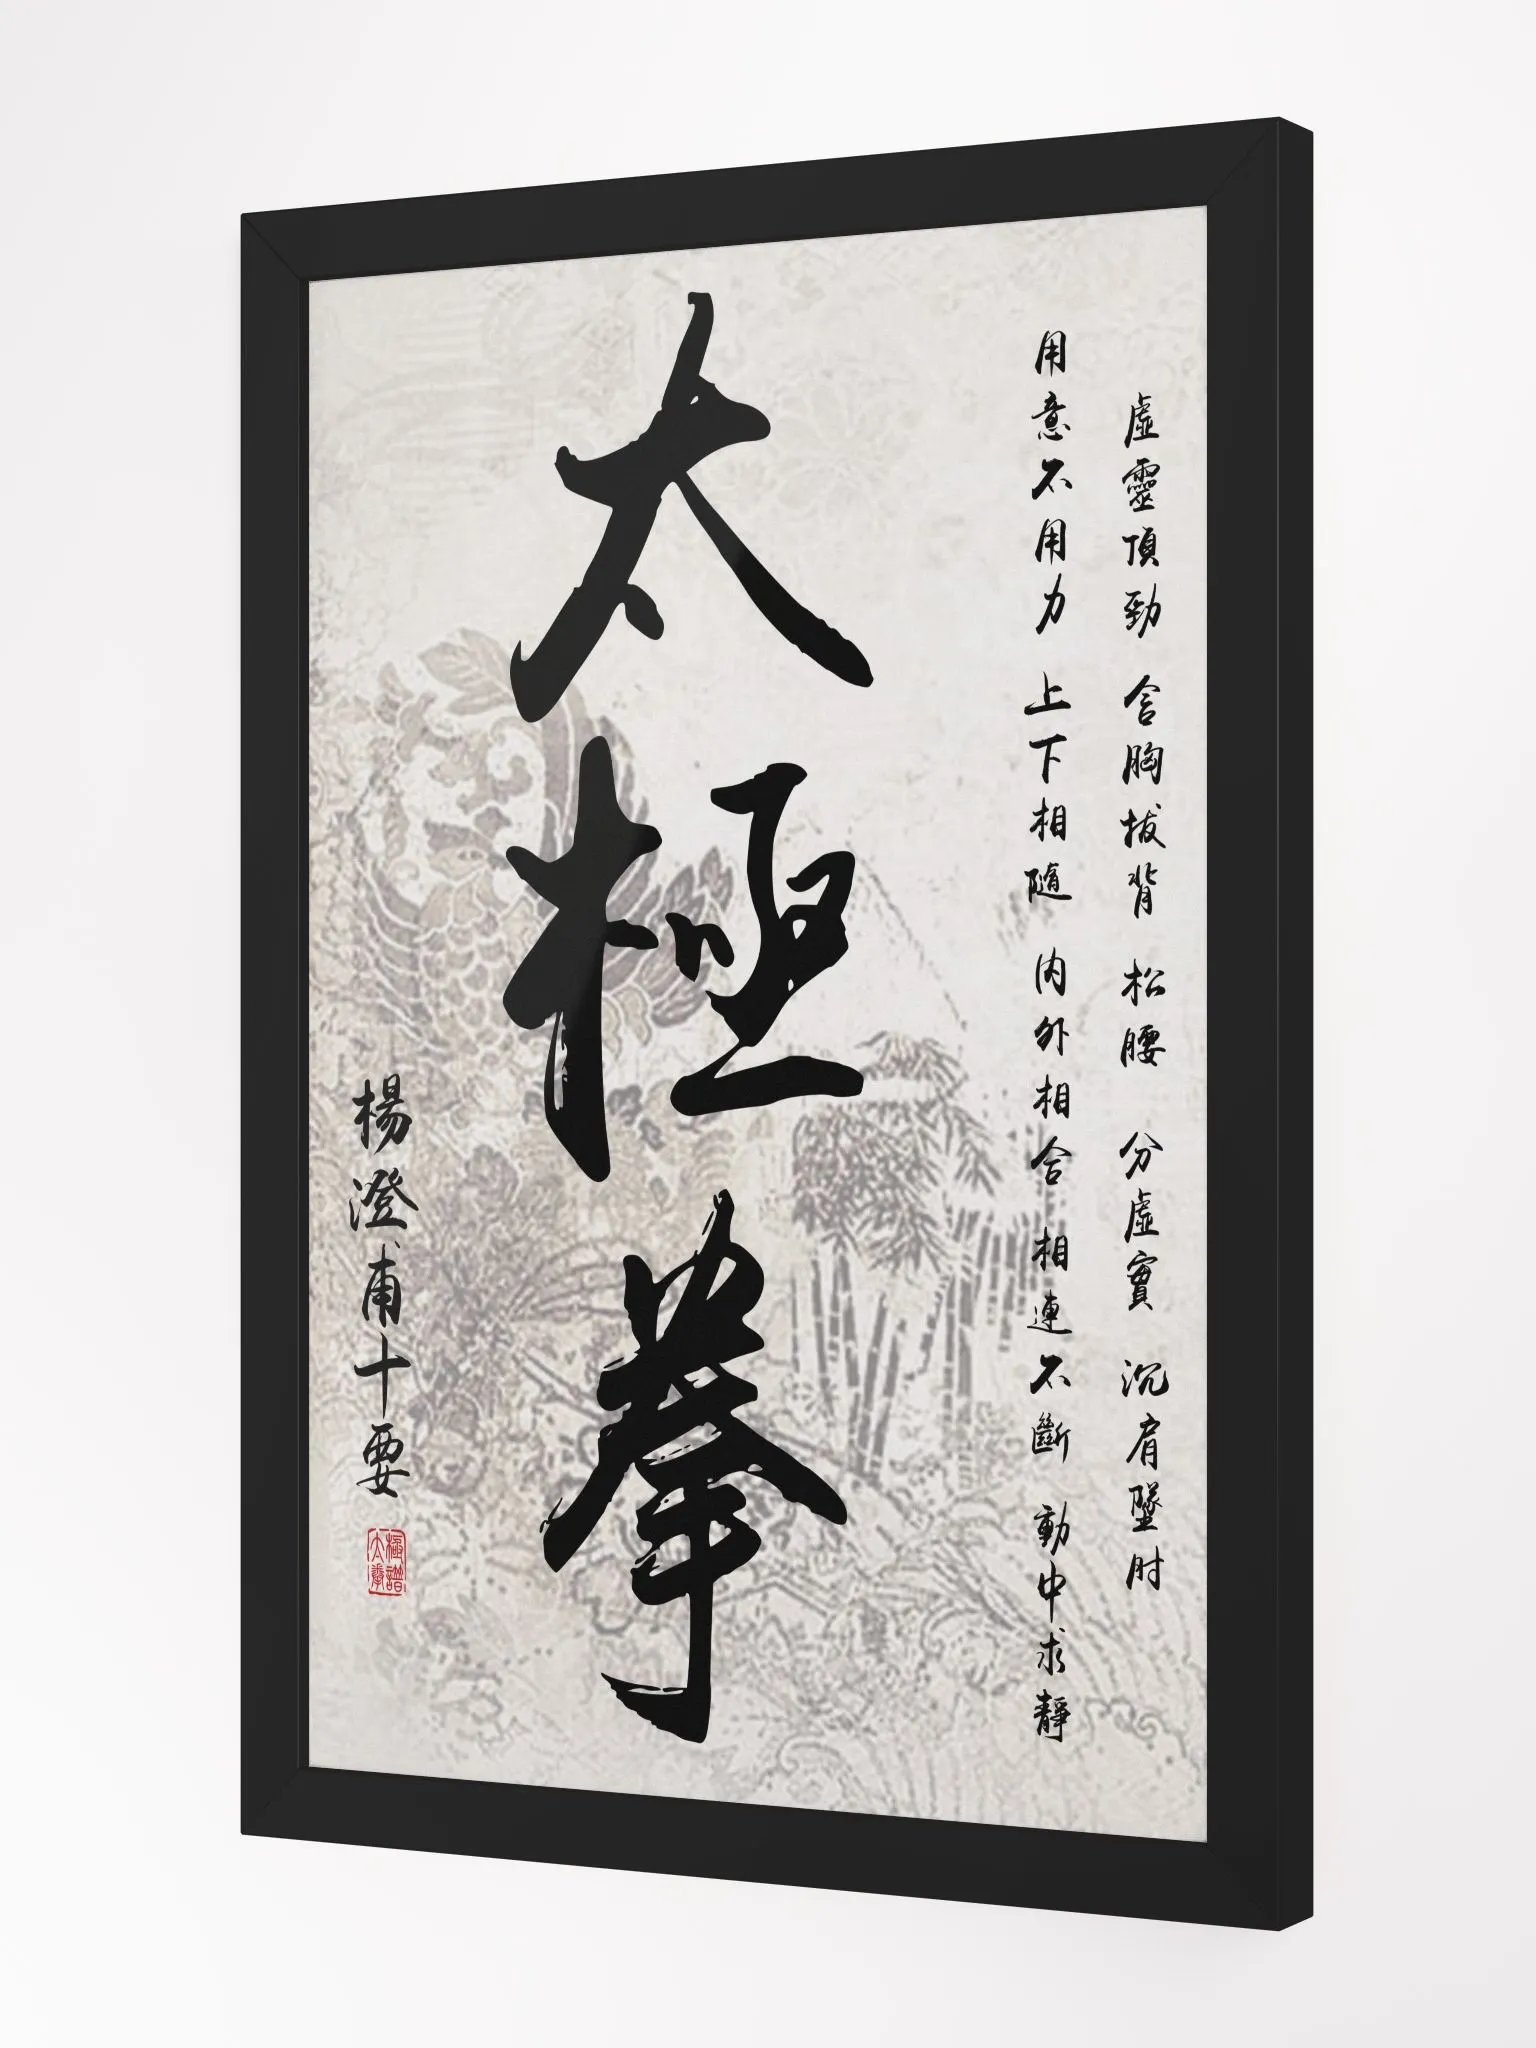 虛靈頂勁 含胸拔背 松腰 分虛實 沉肩墜肘
用意不用力 上下相隨 內外相合 相連不斷 動中求靜
太極拳
楊澄甫十要
太極
拳譜